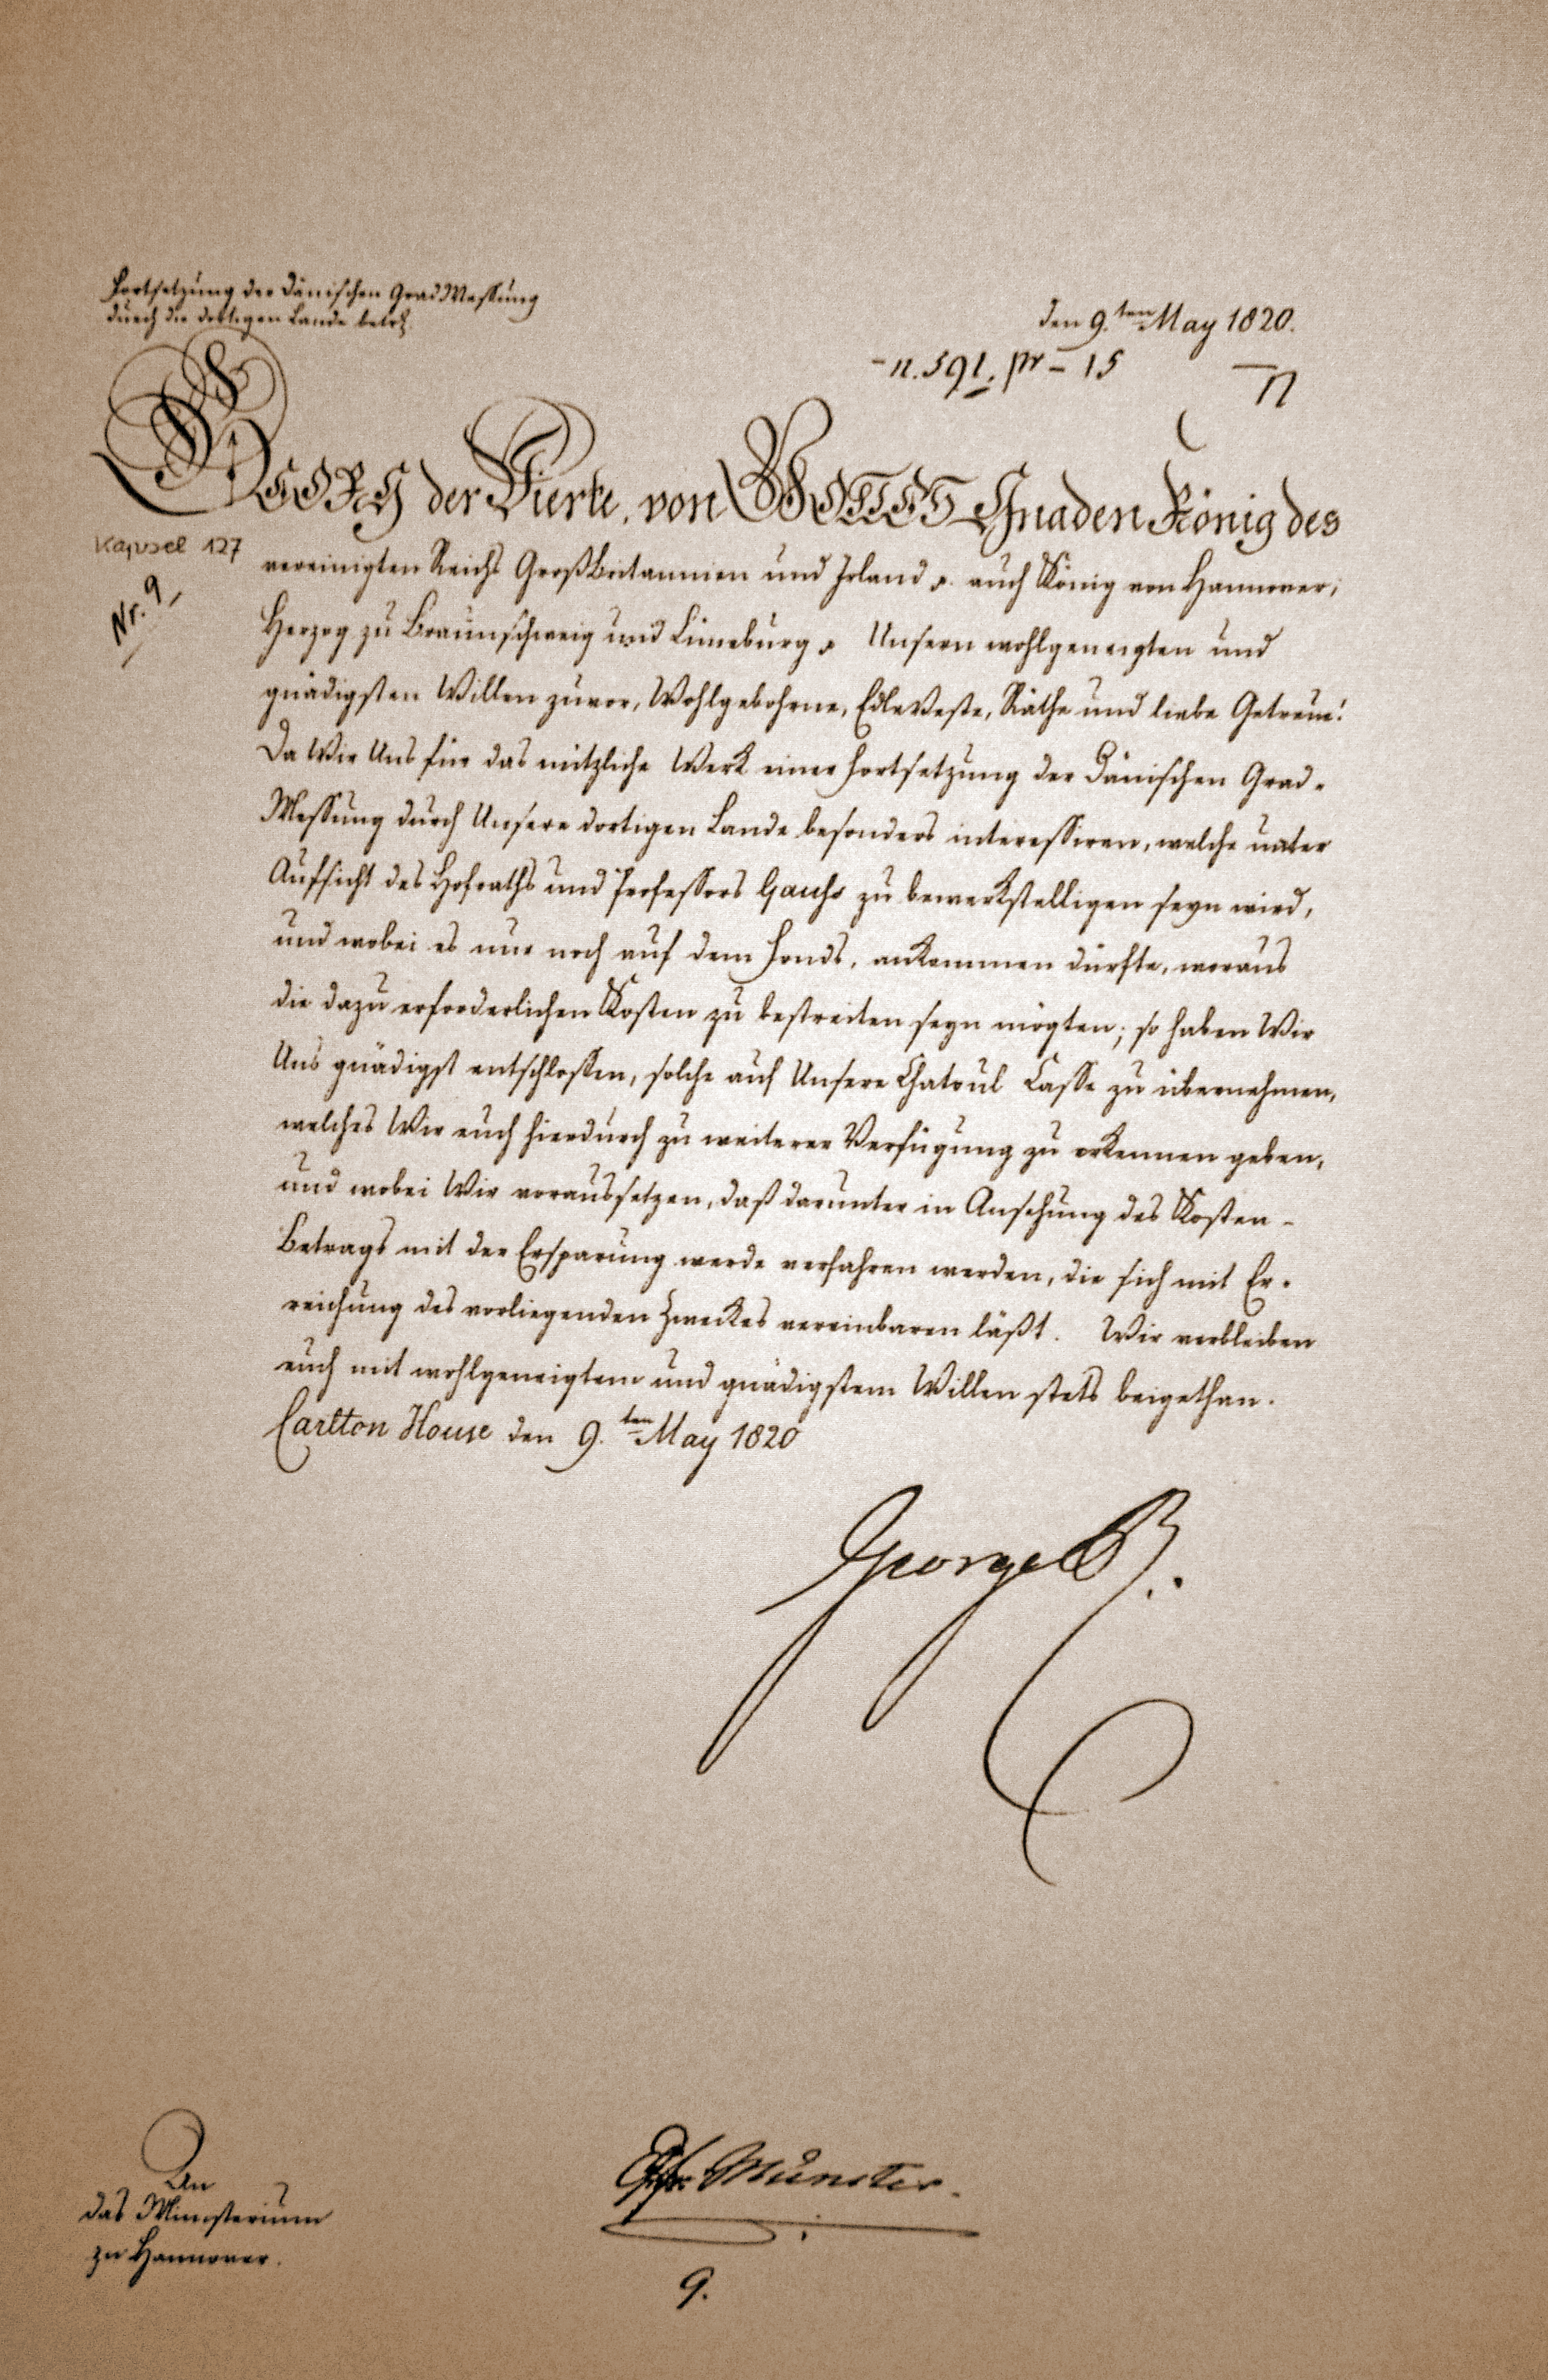 Fortsetzung der Dänischen GradMessung
durch die dortigen Lande betr.
den 9.ten May 1820.
n. 591. pr – 15
GEORG der Vierte, von GOTTES Gnaden König des
Kapsel 127
Nr. 9
vereinigten Reichs Großbritannien und Irland p. auch König von Hannover,
Herzog zu Braunschweig und Lüneburg p Unsern wohlgeneigten und
gnädigsten Willen zuvor, Wohlgebohrne, EdleVeste, Räthe und liebe Getreue!
Da Wir Uns für das nützliche Werk einer Fortsetzung der Dänischen Grad-
Messung durch Unsere dortigen Lande besonders interessiren, welche unter
Aufsicht des Hofraths und Professors Gauss zu bewerkstelligen seyn wird,
und wobei es nur noch auf dem Fonds, ankommen dürfte, woraus
die dazu erforderlichen Kosten zu bestreiten seyn mögten; so haben Wir
Uns gnädigst entschlossen, solche auf Unsere Chatoul Casse zu übernehmen,
welches Wir euch hierdurch zu weiterer Verfügung zu erkennen geben,
und wobei Wir voraussetzen, daß darunter in Ansehung des Kosten-
Betrags mit der Ersparung werde verfahren werden, die sich mit Er-
reichung des vorliegenden Zweckes vereinbaren läßt. Wir verbleiben
euch mit wohlgeneigtem und gnädigstem Willen stets beigethan.
Carlton House den 9.ten May 1820
George R.
An
das Ministerium
zu Hannover.
Münster.
9.